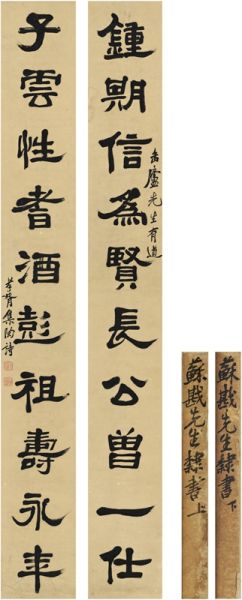 鍾期信為賢長公曾一仕
岳廬先生有道
子雲性耆酒彭祖壽永年
孝胥集陶詩
蘇戡先生隸書上
蘇戡先生隸書下